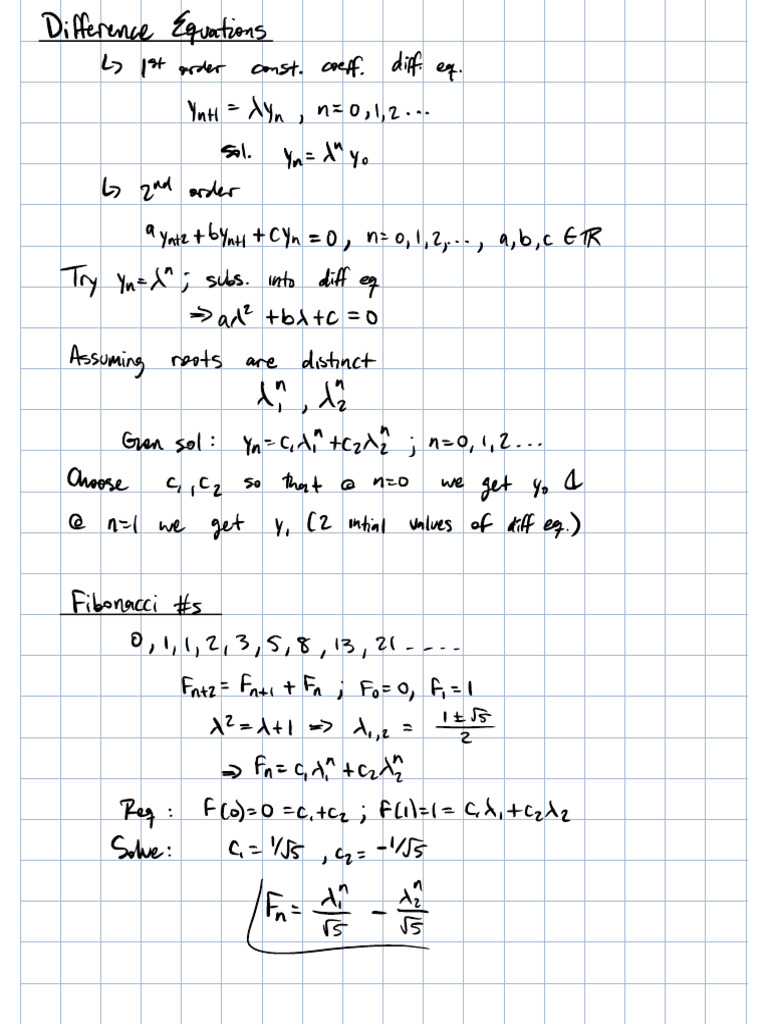 Difference Equations
↳ 1st order const. coeff. diff. eq.
yₙ₊₁ = λyₙ , n = 0,1,2...
sol. yₙ = λⁿ y₀
↳ 2nd order
a yₙ₊₂ + b yₙ₊₁ + c yₙ = 0, n = 0,1,2,..., a,b,c ∈ ℝ
Try yₙ = λⁿ; subs. into diff eq
⇒ aλ² + bλ + c = 0
Assuming roots are distinct
λ₁ⁿ , λ₂ⁿ
Gen sol: yₙ = c₁λ₁ⁿ + c₂λ₂ⁿ ; n = 0,1,2...
Choose c₁, c₂ so that @ n=0 we get y₀ &
@ n=1 we get y₁ (2 intial values of diff eq.)
Fibonacci #s
0,1,1,2,3,5,8,13,21....
Fₙ₊₂ = Fₙ₊₁ + Fₙ ; F₀=0, F₁=1
λ² = λ+1 ⇒ λ₁,₂ = (1 ± √5)/2
⇒ Fₙ = c₁λ₁ⁿ + c₂λ₂ⁿ
Req: F(0)=0=c₁+c₂ ; F(1)=1= c₁λ₁+c₂λ₂
Solve: c₁ = 1/√5 , c₂ = -1/√5
Fₙ = λ₁ⁿ/√5 − λ₂ⁿ/√5